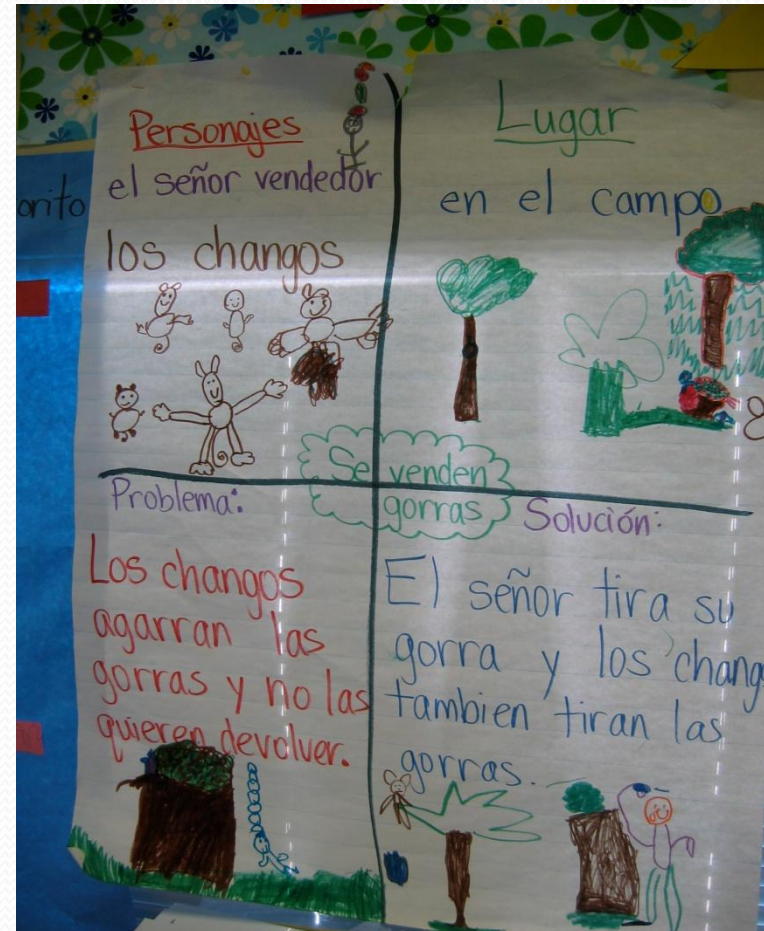 Personajes
el señor vendedor
los changos
Lugar
en el campo
orito
Se venden
gorras
Problema:
Los changos
agarran las
gorras y no las
quieren devolver.
Solución:
El señor tira su
gorra y los chang
tambien tiran las
gorras.